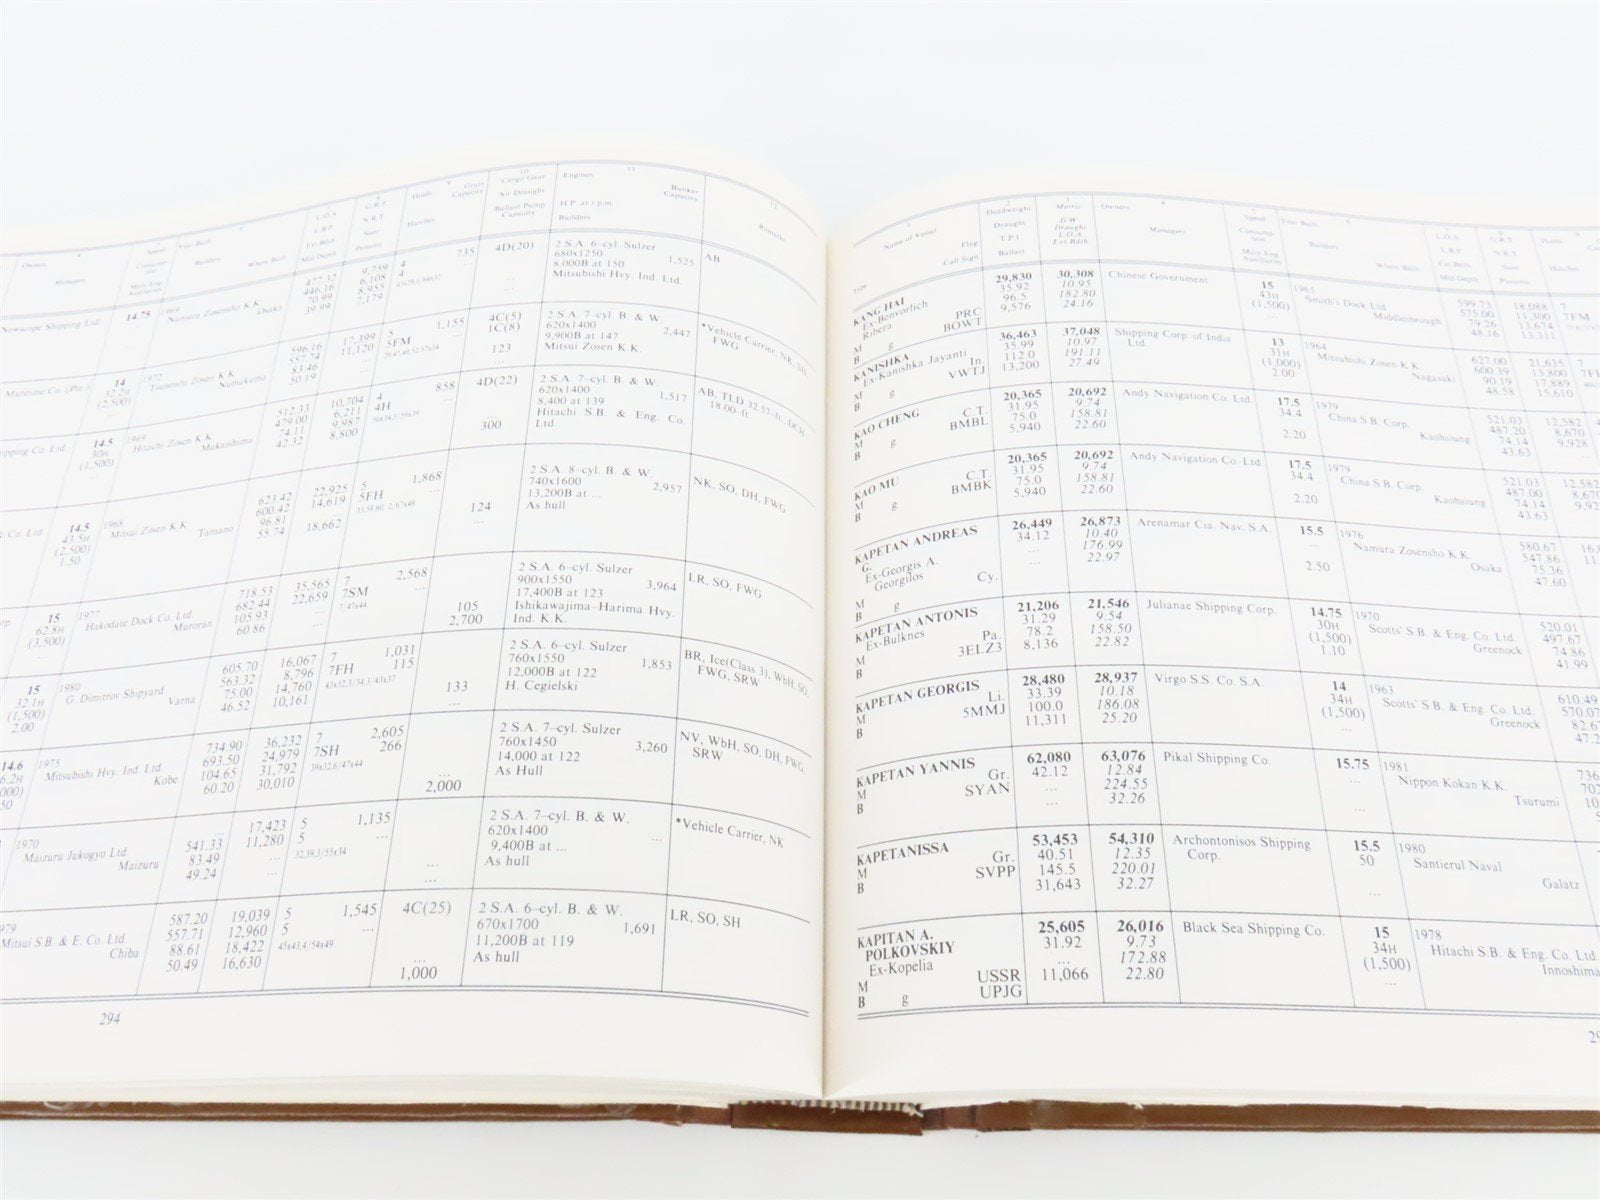 4 Owners Managers
5 Speed Consumption Main Eng Auxiliaries
6 Year Built Builders Where Built
7 L.O.A. L.B.P. Ext Bdth Mld Depth
8 G.R.T. N.R.T. Suez Panama
9 Holds Grain Capacity Hatches
10 Cargo Gear Air Draught Ballast Pump Capacity
11 Engines Bunker Capacity H.P. at r.p.m. Builders
12 Remarks
Newscope Shipping Ltd. 14.75 1969 Namura Zosensho K.K. Osaka
477.32 446.16 70.99 39.99
9,759 6,108 8,955 7,179
4 735
4 ...
4D(20)
2 S.A. 6-cyl. Sulzer
680x1250 1,525
8,000B at 150
Mitsubishi Hvy. Ind. Ltd.
AB
Maritime Co. (Pte.) 14 32.2H (2,500) 1972 Tsuneishi Zosen K.K. Numakuma
596.16 557.74 83.46 50.19
17,399 11,120
5 1,155
5FM
4C(5)
1C(8)
123
2 S.A. 7-cyl. B. & W.
620x1400 2,447
9,900B at 147
Mitsui Zosen K.K.
*Vehicle Carrier, NK, SH
FWG
Shipping Co. Ltd. 14.5 30H (1,500) 1969 Hitachi Zosen K.K. Mukaishima
512.33 479.00 74.11 42.32
10,704 6,211 9,987 8,800
4 858
4H
4D(22)
300
2 S.A. 7-cyl. B. & W.
620x1400 1,517
8,400 at 139
Hitachi S.B. & Eng. Co.
Ltd.
AB, TLD 32.57-ft., DCH
18.00-ft
& Co. Ltd. 14.5 43.5H (2,500) 1.50 1968 Mitsui Zosen K.K. Tamano
623.42 600.42 96.81 55.74
22,925 14,619 18,662
5 1,868
5FH ...
124
2 S.A. 8-cyl. B. & W.
740x1600 2,957
13,200B at ...
As hull
NK, SO, DH, FWG
15 62.8H (3,500) 1977 Hakodate Dock Co. Ltd. Muroran
718.53 682.44 105.93 60.86
35,565 22,659
7 2,568
7SM ...
7/47x44
105
2,700
2 S.A. 6-cyl. Sulzer
900x1550 3,964
17,400B at 123
Ishikawajima-Harima Hvy.
Ind. K.K.
LR, SO, FWG
15 32.1H (1,500) 2.00 1980 G. Dimitrov Shipyard Varna
605.70 563.32 75.00 46.52
16,067 8,796 14,760 10,161
7 1,031
7FH 115
133
2 S.A. 6-cyl. Sulzer
760x1550 1,853
12,000B at 122
H. Cegielski
BR, Ice(Class 3), WbH, SO,
FWG, SRW
14.6 1975 Mitsubishi Hvy. Ind. Ltd. Kobe
734.90 693.50 104.65 60.20
36,232 24,979 31,792 30,010
7 2,605
7SH 266
39x32,6/47x44
2,000
2 S.A. 7-cyl. Sulzer
760x1450 3,260
14,000 at 122
As Hull
NV, WbH, SO, DH, FWG,
SRW
1970 Maizuru Jukogyo Ltd. Maizuru
541.33 83.49 49.24
17,423 11,280
5 1,135
5
32,39,3/55x34
2 S.A. 7-cyl. B. & W.
620x1400 ...
9,400B at ...
As hull
*Vehicle Carrier, NK
1979 Mitsui S.B. & E. Co. Ltd. Chiba
587.20 557.71 88.61 50.49
19,039 12,960 18,422 16,630
5 1,545
5 ...
45x43,4/54x49
4C(25)
1,000
2 S.A. 6-cyl. B. & W.
670x1700 1,691
11,200B at 119
As hull
LR, SO, SH
294
1 Name of Vessel Flag Call Sign TYPE
2 Deadweight Draught T.P.I. Ballast
3 Metric D.W. Draught L.O.A. Ext.Bdth
4 Owners Managers
5 Speed Consumption Main Eng Auxiliaries
6 Year Built Builders Where Built
7 L.O.A. L.B.P. Ext Bdth Mld Depth
8 G.R.T. N.R.T. Suez Panama
Holds Hatches
KANG HAI 29,830 30,308 Chinese Government 15 1965
Ex-Benvorlich 35.92 10.95 43H Smith's Dock Ltd. 599.73 18,088 7
Ribera PRC 96.5 182.80 (1,500) Middlesbrough 575.00 11,300 7FM
M BOWT 9,576 24.16 79.26 13,674
B g 48.16 13,311
KANISHKA 36,463 37,048 Shipping Corp. of India 13 1964
Ex-Kanishka Jayanti 35.99 10.97 Ltd. 31H Mitsubishi Zosen K.K. 627.00 21,635 7
In. 112.0 191.11 (1,000) Nagasaki 600.39 13,800
M VWTJ 13,200 27.49 2.00 90.19 17,889
B g 48.58 15,610
KAO CHENG 20,365 20,692 Andy Navigation Co. Ltd. 17.5 1979
C.T. 31.95 9.74 34.4 China S.B. Corp. 521.03 12,582
M BMBL 75.0 158.81 Kaohsiung 487.20 8,670
B g 5,940 22.60 2.20 74.14 9,928
43.63 ...
KAO MU 20,365 20,692 Andy Navigation Co. Ltd. 17.5 1979
C.T. 31.95 9.74 34.4 China S.B. Corp. 521.03 12,582
M BMBK 75.0 158.81 Kaohsiung 487.00 8,670
B g 5,940 22.60 2.20 74.14
43.63
KAPETAN ANDREAS 26,449 26,873 Arenamar Cia. Nav. S.A. 15.5 1976
G. 34.12 10.40 ... Namura Zosensho K.K. 580.67
Ex-Georgis A. ... 176.99 Osaka 547.86
Georgilos Cy. ... 22.97 2.50 75.36
M 47.60
B g
KAPETAN ANTONIS 21,206 21,546 Julianae Shipping Corp. 14.75 1970
Ex-Bulknes Pa. 31.29 9.54 30H Scotts' S.B. & Eng. Co. Ltd. 520.01
M 3ELZ3 78.2 158.50 (1,500) Greenock 497.67
B 8,136 22.82 1.10 74.86
41.99
KAPETAN GEORGIS 28,480 28,937 Virgo S.S. Co. S.A. 14 1963
Li. 33.39 10.18 34H Scotts' S.B. & Eng. Co. Ltd. 610.49
M 5MMJ 100.0 186.08 (1,500) Greenock
B 11,311 25.20
KAPETAN YANNIS 62,080 63,076 Pikal Shipping Co. 15.75 1981
M Gr. 42.12 12.84 ... Nippon Kokan K.K.
B SYAN ... 224.55 Tsurumi
... 32.26 ...
KAPETANISSA 53,453 54,310 Archontonisos Shipping 15.5 1980
M Gr. 40.51 12.35 Corp. 50 Santierul Naval
B SVPP 145.5 220.01 Galatz
31,643 32.27 ...
KAPITAN A. 25,605 26,016 Black Sea Shipping Co. 15 1978
POLKOVSKIY 31.92 9.73 34H Hitachi S.B. & Eng. Co. Ltd.
Ex-Kopelia ... 172.88 (1,500) Innoshima
M USSR 11,066 22.80 ...
B g UPJG